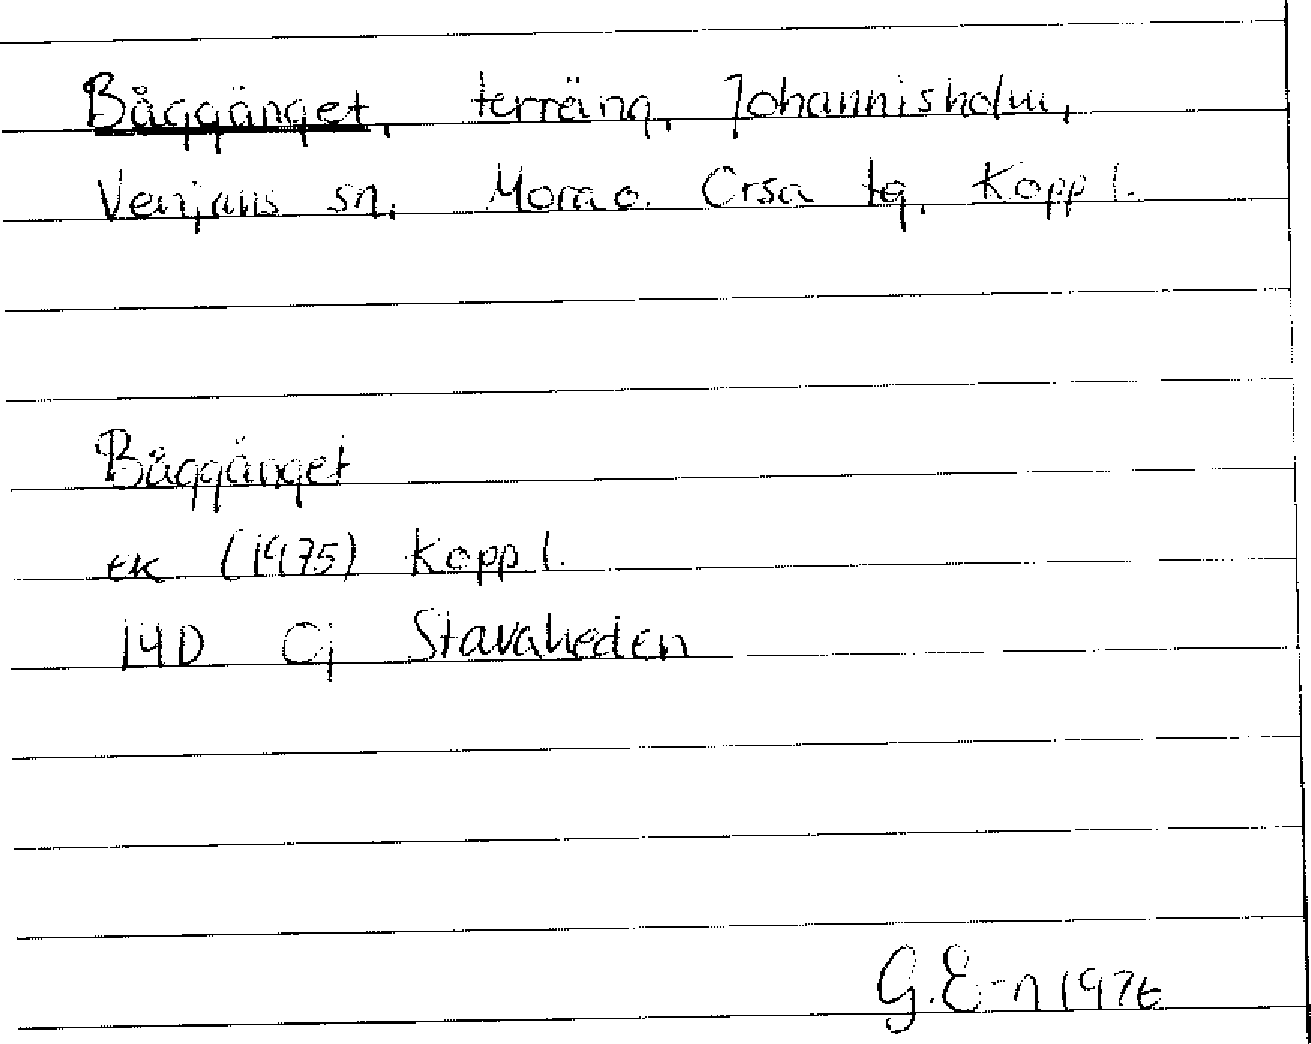 Båggånget, terräng, Johannisholm,
Venjans sn. Mora o. Orsa tg, Kopp l.
Båggånget
ek (1975) Kopp l.
14D 0j Stavaheden
G.E-n 1976